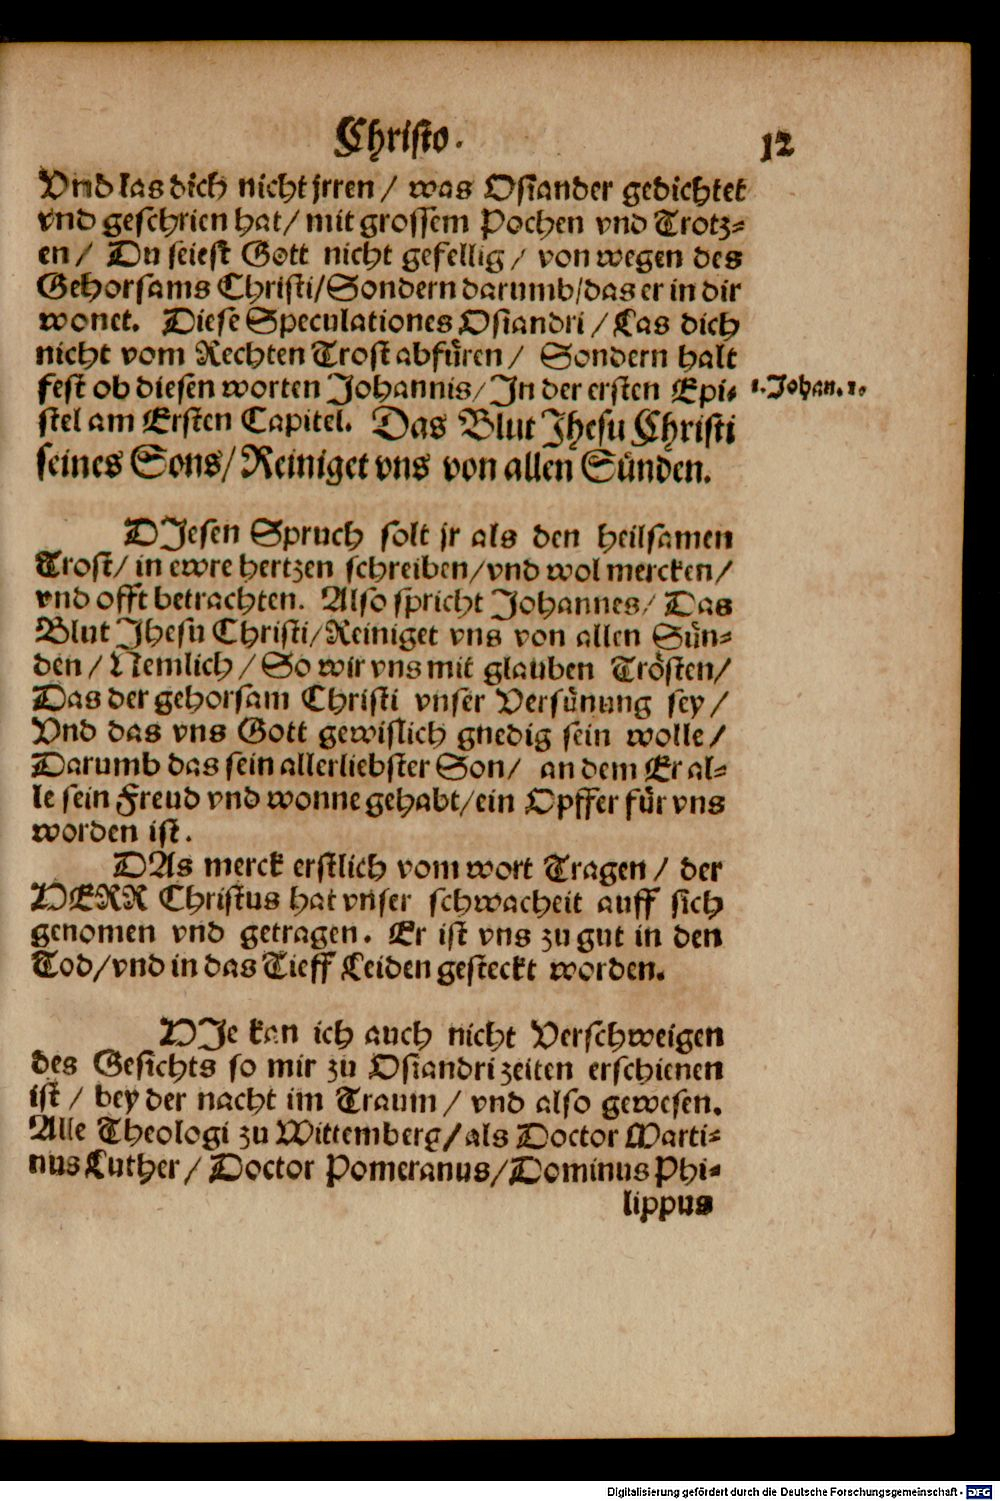 Christo.
12
Vnd las dich nicht jrren / was Osiander gedichtet
vnd geschrien hat / mit grossem Pochen vnd Trotz-
en / Du seiest Gott nicht gefellig / von wegen des
Gehorsams Christi/Sondern darumb/das er in dir
wonet. Diese Speculationes Osiandri / Las dich
nicht vom Rechten Trost abfüren / Sondern halt
fest ob diesen worten Johannis/ In der ersten Epi-
1. Johan. 1.
stel am Ersten Capitel. Das Blut Jhesu Christi
seines Sons/ Reiniget vns von allen Sünden.
DIesen Spruch solt jr als den heilsamen
Trost/ in ewre hertzen schreiben/vnd wol mercken/
vnd offt betrachten. Also spricht Johannes/ Das
Blut Jhesu Christi/Reiniget vns von allen Sün-
den / Nemlich / So wir vns mit glauben Trösten/
Das der gehorsam Christi vnser Versünung sey /
Vnd das vns Gott gewislich gnedig sein wolle /
Darumb das sein allerliebster Son/ an dem Er al-
le sein Freud vnd wonne gehabt/ein Opffer für vns
worden ist.
DAs merck erstlich vom wort Tragen / der
HERR Christus hat vnser schwacheit auff sich
genomen vnd getragen. Er ist vns zu gut in den
Tod/vnd in das Tieff Leiden gesteckt worden.
HIe kan ich auch nicht Verschweigen
des Gesichts so mir zu Osiandri zeiten erschienen
ist / bey der nacht im Traum / vnd also gewesen.
Alle Theologi zu Wittemberg/als Doctor Marti-
nus Luther / Doctor Pomeranus/Dominus Phi-
lippus
Digitalisierung gefördert durch die Deutsche Forschungsgemeinschaft - DFG